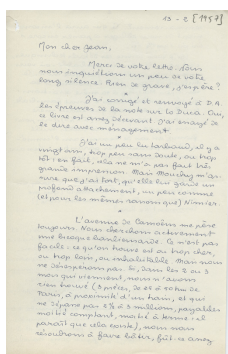 13-2 [1957]
Mon cher Jean,
Merci de votre lettre. Nous
nous inquiétions un peu de votre
long silence. Rien de grave, j'espère ?
J'ai corrigé et renvoyé à D.A.
les épreuves de la note sur Le Ducà. Oui,
ce livre est assez décevant. J'ai essayé de
le dire avec ménagement.
J'ai un peu lu Larbaud, il y a
vingt ans, trop peu sans doute, ou trop
tôt : en fait, il a ne m'a pas fait très
grande impression. Mais
sure que j'ai tort, qu'elle lui garde un
profond attachement, un peu comme
(et pour les mêmes raisons que) Nimier.
L'avenue de Camoëns me pèse
toujours. Nous cherchons activement
une bicoque banlieusarde. Ce n'est pas
facile : ce qu'on trouve est ou trop cher,
ou trop loin, ou inhabitable. Mais nous
ne désespérons pas. Si, dans les 2 ou 3
mois qui viennent, nous n'avons
rien trouvé (3 pièces, de et à 10 km de
Paris, à proximité d'un train, et qui
ne dépasse pas 2 ½ à 3 millions, payables
moitié comptant, moitié à terme : il
paraît que cela existe), nous nous
résoudrons à faire bâtir, fût-ce assez